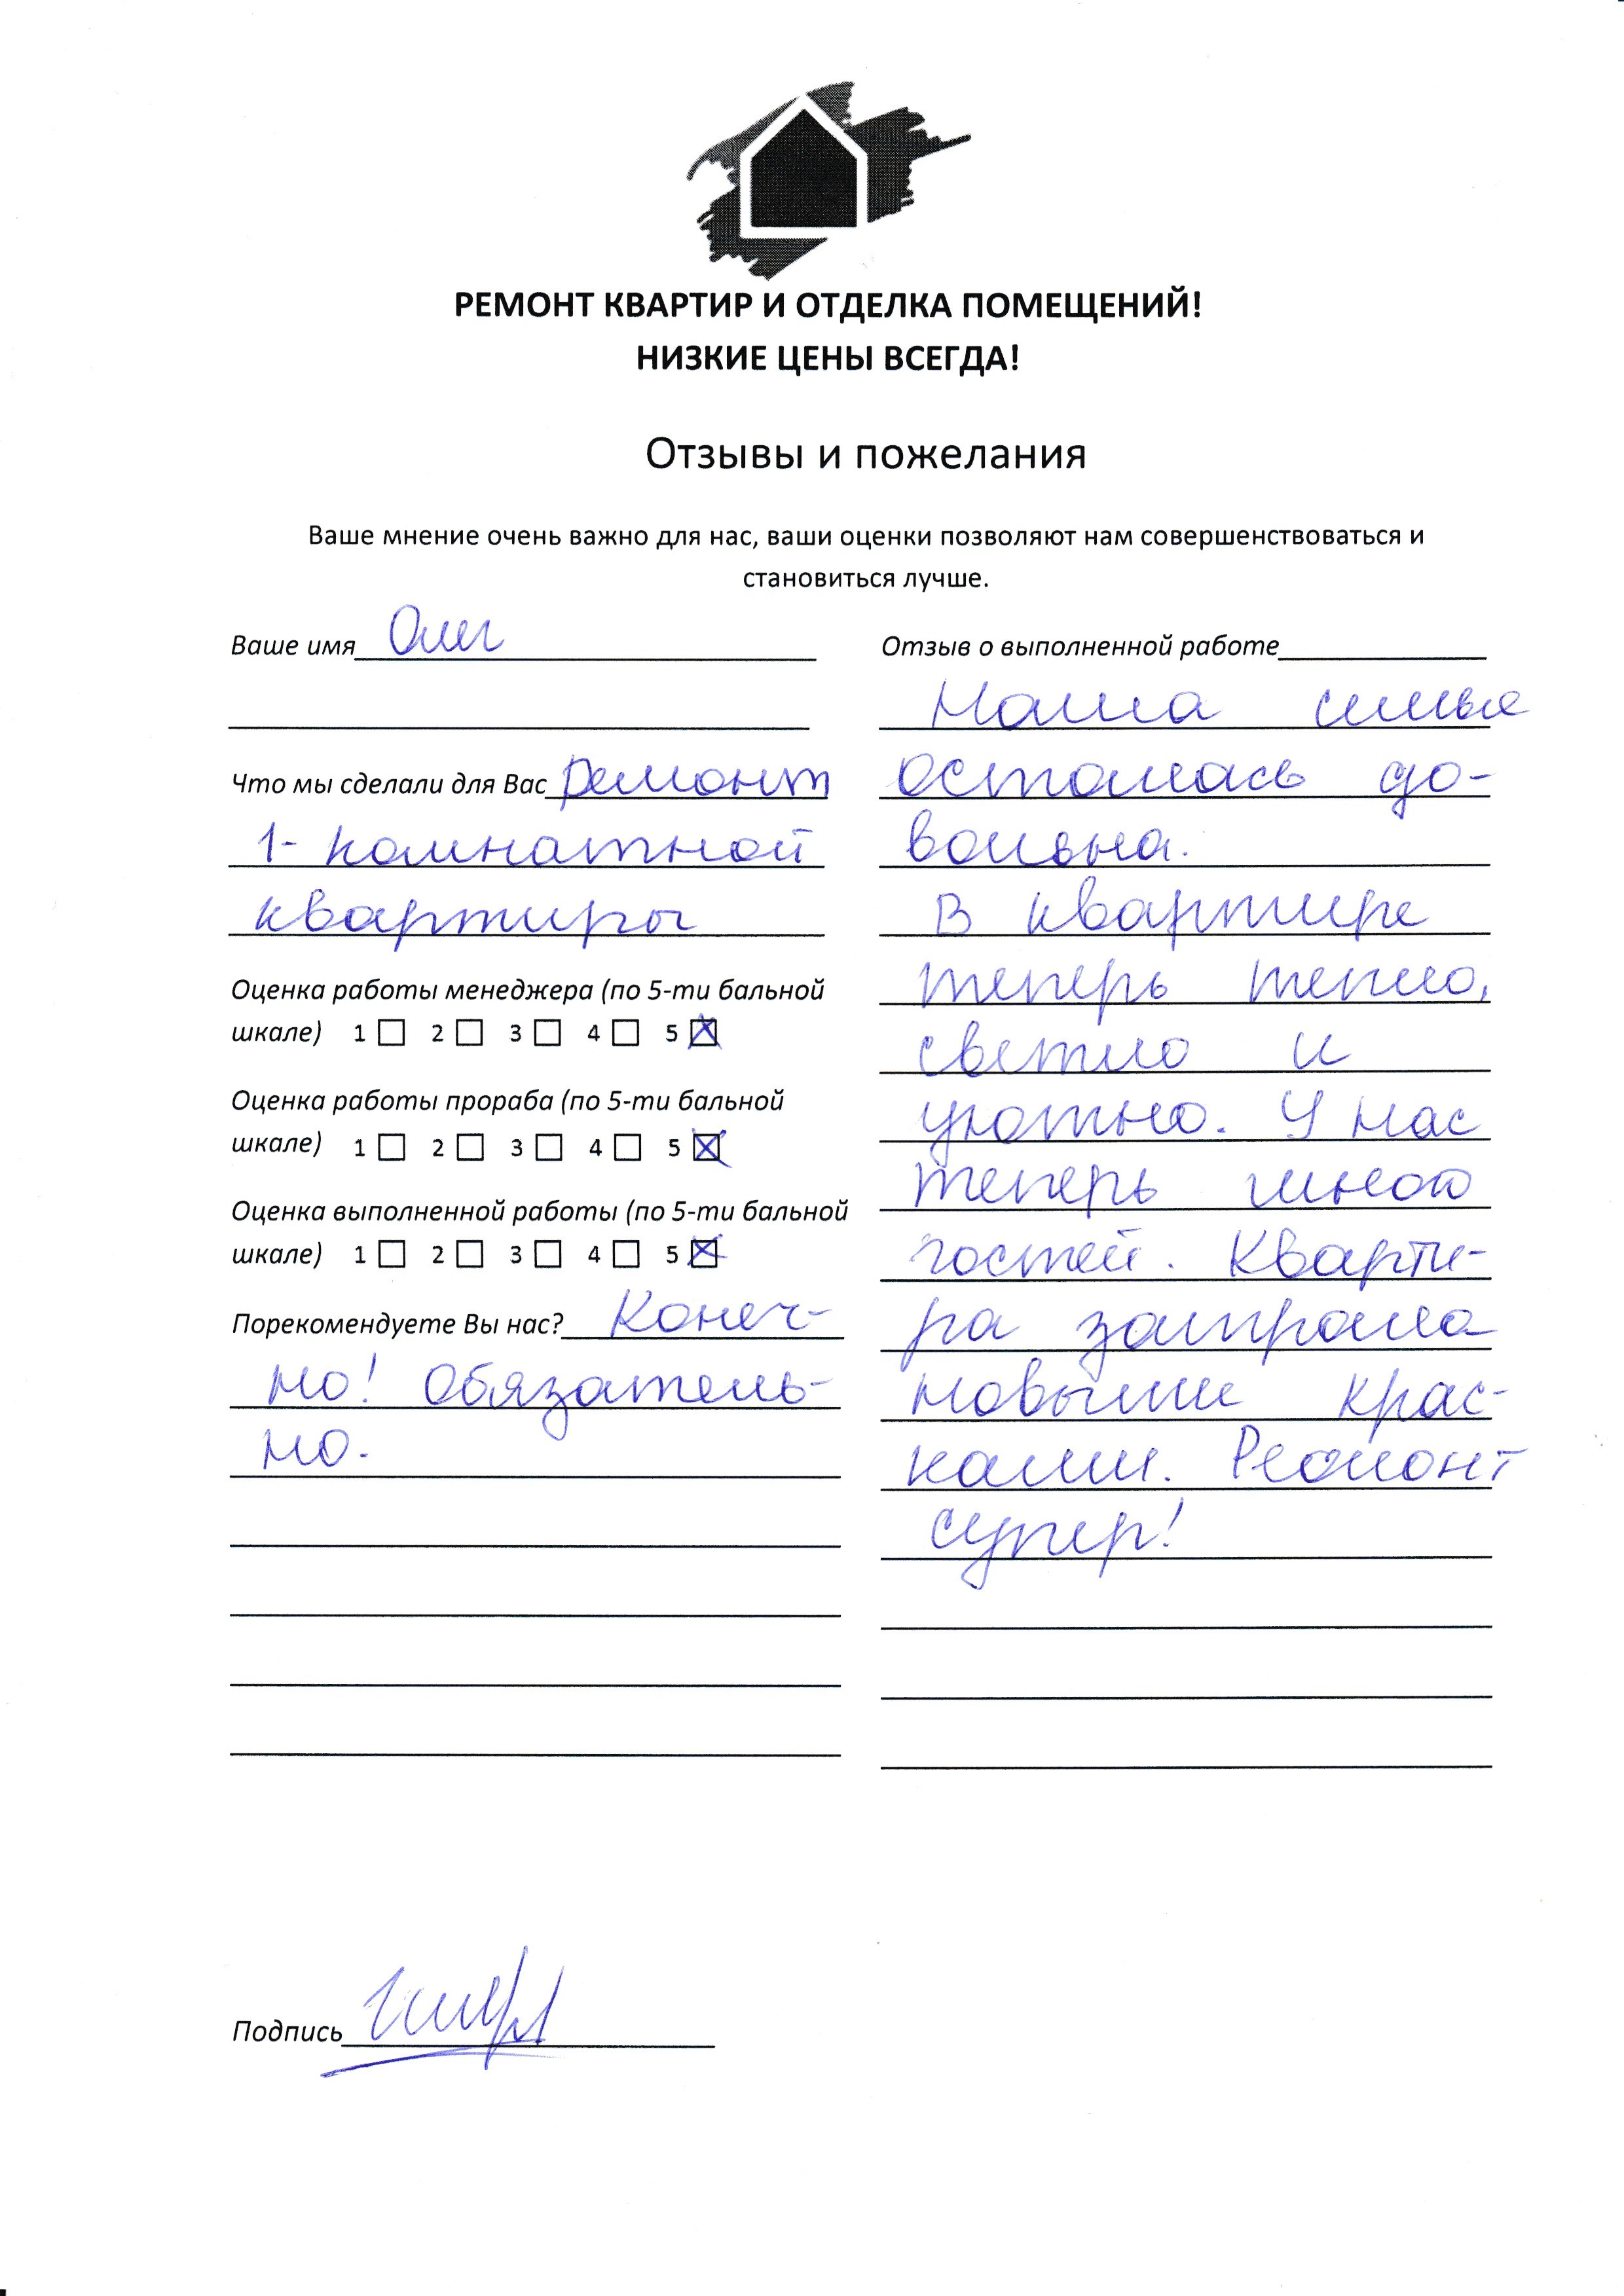 РЕМОНТ КВАРТИР И ОТДЕЛКА ПОМЕЩЕНИЙ!
НИЗКИЕ ЦЕНЫ ВСЕГДА!
Отзывы и пожелания
Ваше мнение очень важно для нас, ваши оценки позволяют нам совершенствоваться и
становиться лучше.
Ваше имя Олег
Что мы сделали для Вас ремонт
1-комнатной
квартиры
Оценка работы менеджера (по 5-ти бальной
шкале) 1 ☐ 2 ☐ 3 ☐ 4 ☐ 5 ☒
Оценка работы прораба (по 5-ти бальной
шкале) 1 ☐ 2 ☐ 3 ☐ 4 ☐ 5 ☒
Оценка выполненной работы (по 5-ти бальной
шкале) 1 ☐ 2 ☐ 3 ☐ 4 ☐ 5 ☒
Порекомендуете Вы нас? Конеч-
но! Обязатель-
но.
Отзыв о выполненной работе
Наша семья
осталась до-
вольна.
В квартире
теперь тепло,
светло и
уютно. У нас
теперь много
гостей. Кварти-
ра заиграла
новыми крас-
ками. Ремонт
супер!
Подпись